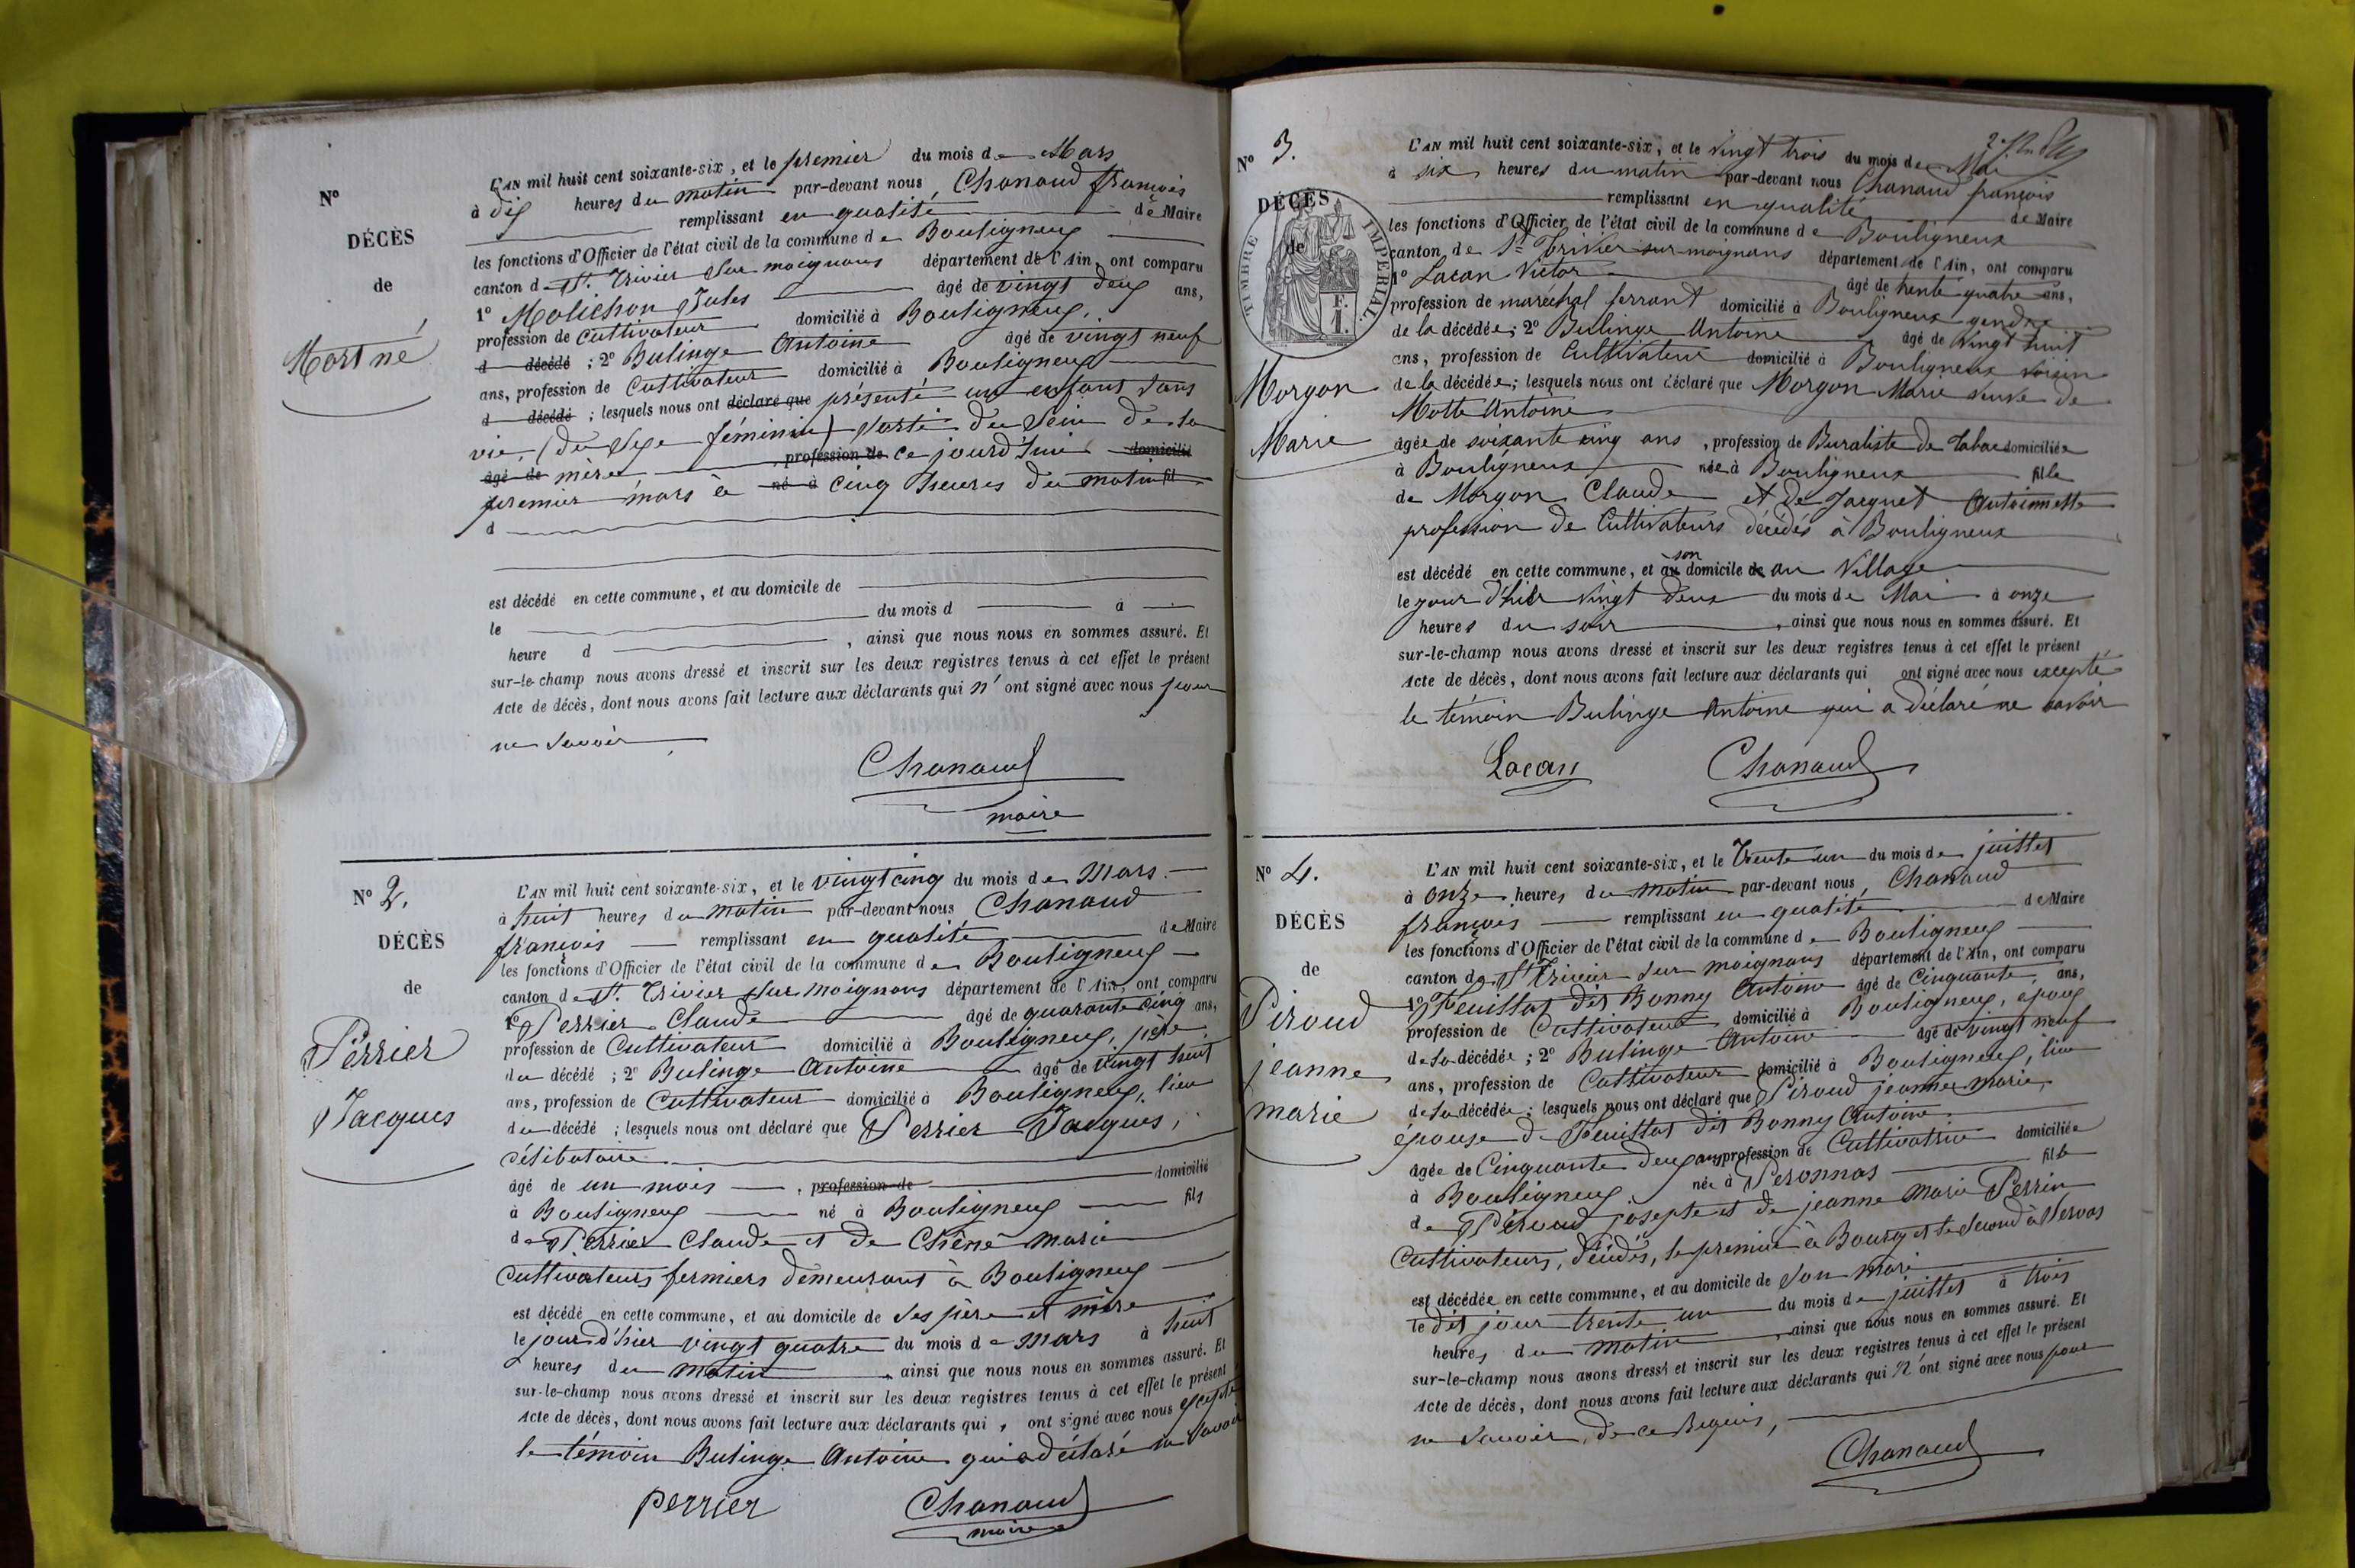 N°
DÉCÈS
de
Mort né
L'AN mil huit cent soixante-six, et le premier du mois de Mars
à dix heures du matin par-devant nous, Chanaud françois
remplissant en qualité de Maire
les fonctions d'Officier de l'état civil de la commune de Bouligneux
canton de St. Trivier sur moignans département de l'Ain, ont comparu
1° Molichon Jules âgé de vingt deux ans,
profession de Cultivateur domicilié à Bouligneux,
d décédé ; 2° Bulinge Antoine âgé de vingt neuf
ans, profession de Cultivateur domicilié à Bouligneux
d décédé ; lesquels nous ont déclaré que présenté un enfant sans
vie, (du sexe féminin) sorti du sein de sa
âgé de mère , profession de ce jourd'hui domicilié
premier mars à né à cinq heures du matin fil
d
est décédé en cette commune, et au domicile de
le du mois d à
heure d , ainsi que nous nous en sommes assuré. Et
sur-le-champ nous avons dressé et inscrit sur les deux registres tenus à cet effet le présent
Acte de décès, dont nous avons fait lecture aux déclarants qui n'ont signé avec nous pour
ne savoir
Chanaud
maire
N° 2.
DÉCÈS
de
Perrier
Jacques
L'AN mil huit cent soixante-six, et le vingt cinq du mois de Mars.
à huit heures du matin par-devant nous Chanaud
françois remplissant en qualité de Maire
les fonctions d'Officier de l'état civil de la commune de Bouligneux
canton de St. Trivier sur moignans département de l'Ain, ont comparu
1° Perrier Claude âgé de quarante cinq ans,
profession de Cultivateur domicilié à Bouligneux, père
du décédé ; 2° Bulinge Antoine âgé de vingt huit
ans, profession de Cultivateur domicilié à Bouligneux, lieu
du décédé ; lesquels nous ont déclaré que Perrier Jacques,
célibataire
âgé de un mois , profession de domicilié
à Bouligneux né à Bouligneux fils
de Perrier Claude et de Chêne marie
Cultivateurs fermiers demeurant à Bouligneux
est décédé en cette commune, et au domicile de ses père et mère
le jour d'hier vingt quatre du mois de mars à huit
heures du matin , ainsi que nous nous en sommes assuré. Et
sur-le-champ nous avons dressé et inscrit sur les deux registres tenus à cet effet le présent
Acte de décès, dont nous avons fait lecture aux déclarants qui, ont signé avec nous excepté
le témoin Bulinge Antoine qui a déclaré ne savoir
perrier Chanaud
maire
N° 3.
DÉCÈS
de
TIMBRE IMPERIAL
F.
1.
Morgon
Marie
L'AN mil huit cent soixante-six, et le vingt trois du mois de Mai
à six heures du matin par-devant nous Chanaud françois
remplissant en qualité de Maire
les fonctions d'Officier de l'état civil de la commune de Bouligneux
canton de St Trivier sur moignans département de l'Ain, ont comparu
1° Lacan Victor âgé de trente quatre ans,
profession de maréchal ferrant domicilié à Bouligneux gendre
de la décédée; 2° Bulinge Antoine âgé de vingt huit
ans, profession de Cultivateur domicilié à Bouligneux voisin
de la décédée; lesquels nous ont déclaré que Morgon Marie veuve de
Motte Antoine
âgée de soixante cinq ans, profession de Buraliste de tabac domiciliée
à Bouligneux née à Bouligneux fille
de Morgon Claude et de Jacquet Antoinette
profession de Cultivateurs décédés à Bouligneux
est décédé en cette commune, et au son domicile de au Village
le jour d'hier vingt deux du mois de Mai à onze
heures du soir , ainsi que nous nous en sommes assuré. Et
sur-le-champ nous avons dressé et inscrit sur les deux registres tenus à cet effet le présent
Acte de décès, dont nous avons fait lecture aux déclarants qui ont signé avec nous excepté
le témoin Bulinge Antoine qui a déclaré ne savoir
Lacan Chanaud
N° 4.
DÉCÈS
de
Piroud
jeanne
marie
L'AN mil huit cent soixante-six, et le Trente un du mois de juillet
à onze heures du matin par-devant nous, Chanaud
françois remplissant en qualité de Maire
les fonctions d'Officier de l'état civil de la commune de Bouligneux
canton de St Trivier sur moignans département de l'Ain, ont comparu
1° Feuillat dit Bonny Antoine âgé de Cinquante ans,
profession de Cultivateur domicilié à Bouligneux, époux
de la décédée ; 2° Bulinge Antoine âgé de vingt neuf
ans, profession de Cultivateur domicilié à Bouligneux, lieu
de la décédée ; lesquels nous ont déclaré que Piroud jeanne marie,
épouse de Feuillat dit Bonny Antoine.
âgée de Cinquante deux ans, profession de Cultivatrice domiciliée
à Bouligneux, née à Péronnas fille
de Piroud josepte et de jeanne Marie Perrin
Cultivateurs, décédés, le premier à Bourg et le second à Servas
est décédée en cette commune, et au domicile de son mari
le dit jour trente un du mois de juillet à trois
heures du matin , ainsi que nous nous en sommes assuré. Et
sur-le-champ nous avons dressé et inscrit sur les deux registres tenus à cet effet le présent
Acte de décès, dont nous avons fait lecture aux déclarants qui N'ont signé avec nous pour
ne savoir, de ce Requis,
Chanaud